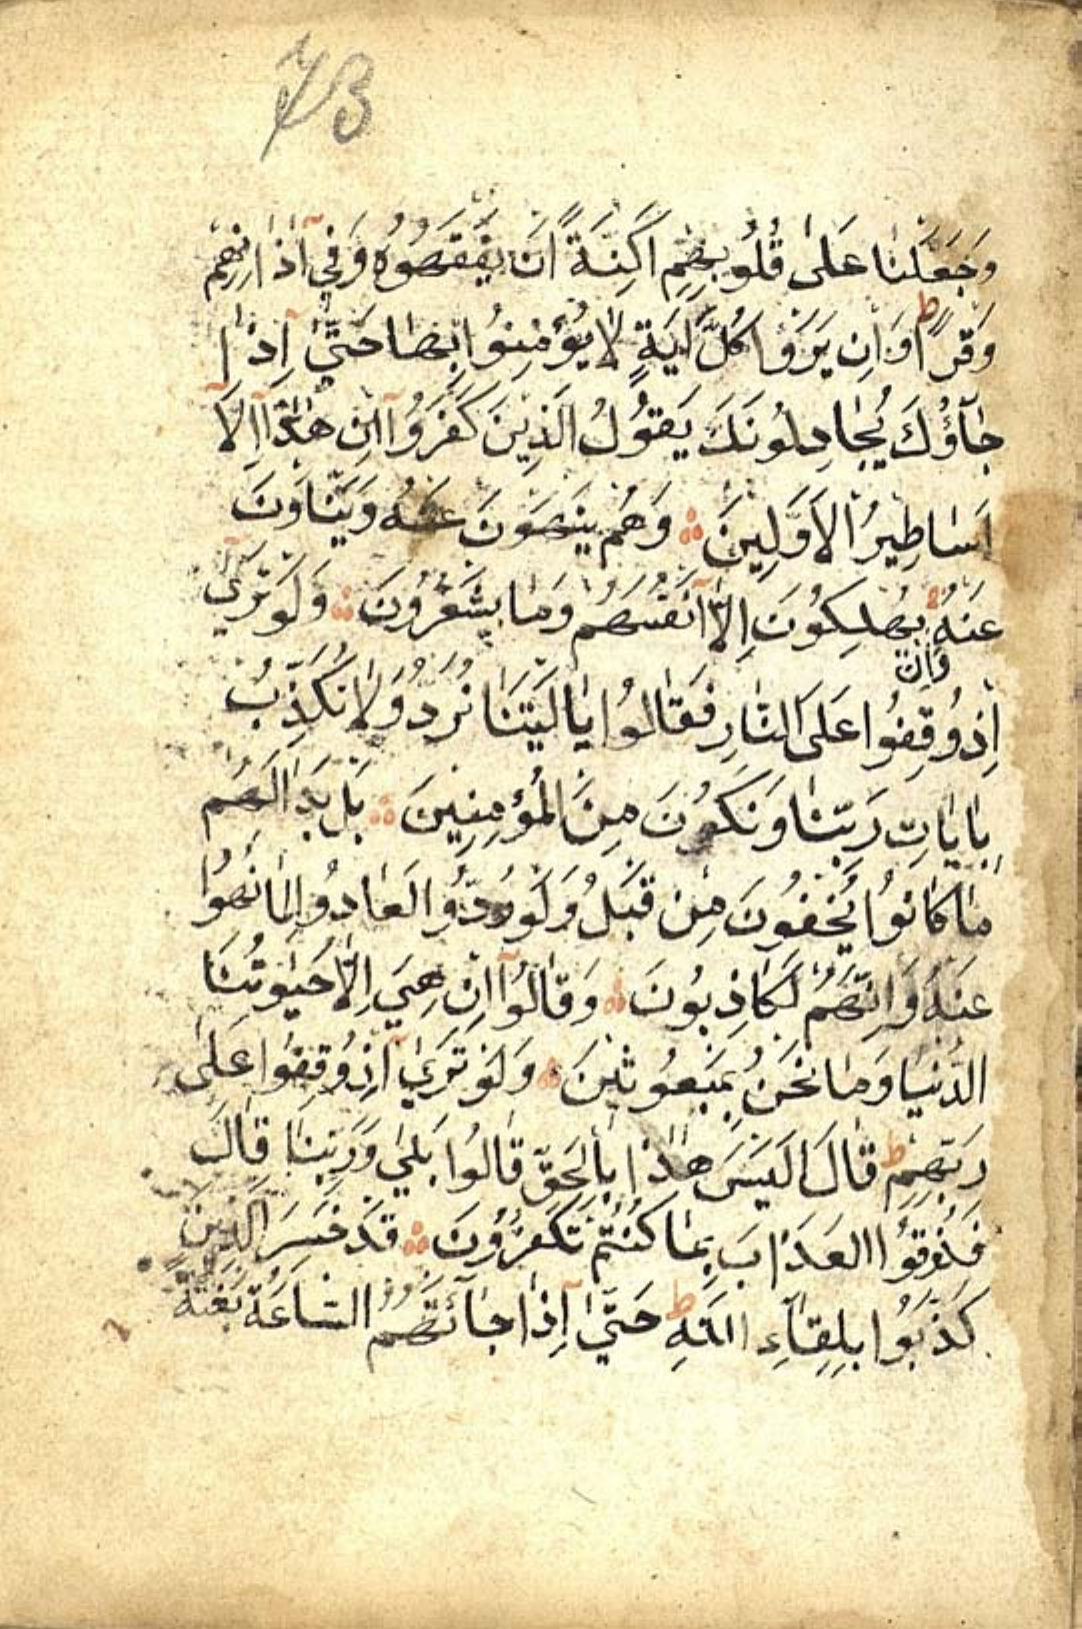 73
وَجَعَلْنَا عَلَى قُلُوبِهِمْ اَكِنَّةً اَنْ يَفْقَهُوهُ وَفِي آذَانِهِمْ
وَقْرًا ط وَاِنْ يَرَوْا كُلَّ اٰيَةٍ لَا يُؤْمِنُوا بِهَا حَتَّىٰ اِذَا
جَآؤُكَ يُجَادِلُونَكَ يَقُولُ الَّذِينَ كَفَرُوآ اِنْ هٰذَآ اِلَّآ
اَسَاطِيرُ الْاَوَّلِينَ وَهُمْ يَنْهَوْنَ عَنْهُ وَيَنْاَوْنَ
عَنْهُ يُهْلِكُونَ اِلَّآ اَنْفُسَهُمْ وَمَا يَشْعُرُونَ وَلَوْ تَرَىٓ
وَاِنْ
اِذْ وُقِفُوا عَلَى النَّارِ فَقَالُوا يَا لَيْتَنَا نُرَدُّ وَلَا نُكَذِّبُ
بِاٰيَاتِ رَبِّنَا وَنَكُونَ مِنَ الْمُؤْمِنِينَ بَلْ بَدَا لَهُمْ
مَا كَانُوا يُخْفُونَ مِنْ قَبْلُ وَلَوْ رُدُّوا لَعَادُوا لِمَا نُهُوا
عَنْهُ وَاِنَّهُمْ لَكَاذِبُونَ وَقَالُوآ اِنْ هِيَ اِلَّا حَيٰوتُنَا
الدُّنْيَا وَمَا نَحْنُ بِمَبْعُوثِينَ وَلَوْ تَرَىٓ اِذْ وُقِفُوا عَلَى
رَبِّهِمْ ط قَالَ اَلَيْسَ هٰذَا بِالْحَقِّ قَالُوا بَلَى وَرَبِّنَا قَالَ
فَذُوقُوا الْعَذَابَ بِمَا كُنْتُمْ تَكْفُرُونَ قَدْ خَسِرَ الَّذِينَ
كَذَّبُوا بِلِقَآءِ اللّٰهِ ط حَتَّىٰٓ اِذَا جَآئَتْهُمُ السَّاعَةُ بَغْتَةً